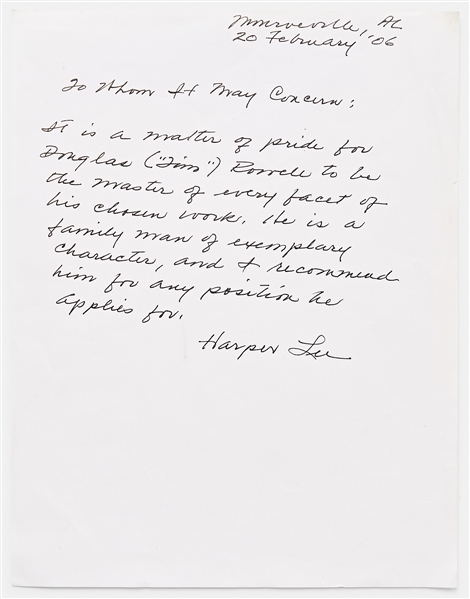 Monroeville, AL
20 February, '06
To Whom It May Concern:
It is a matter of pride for
Douglas ("Tim") Rowell to be
the master of every facet of
his chosen work. He is a
family man of exemplary
character, and I recommend
him for any position he
applies for.
Harper Lee